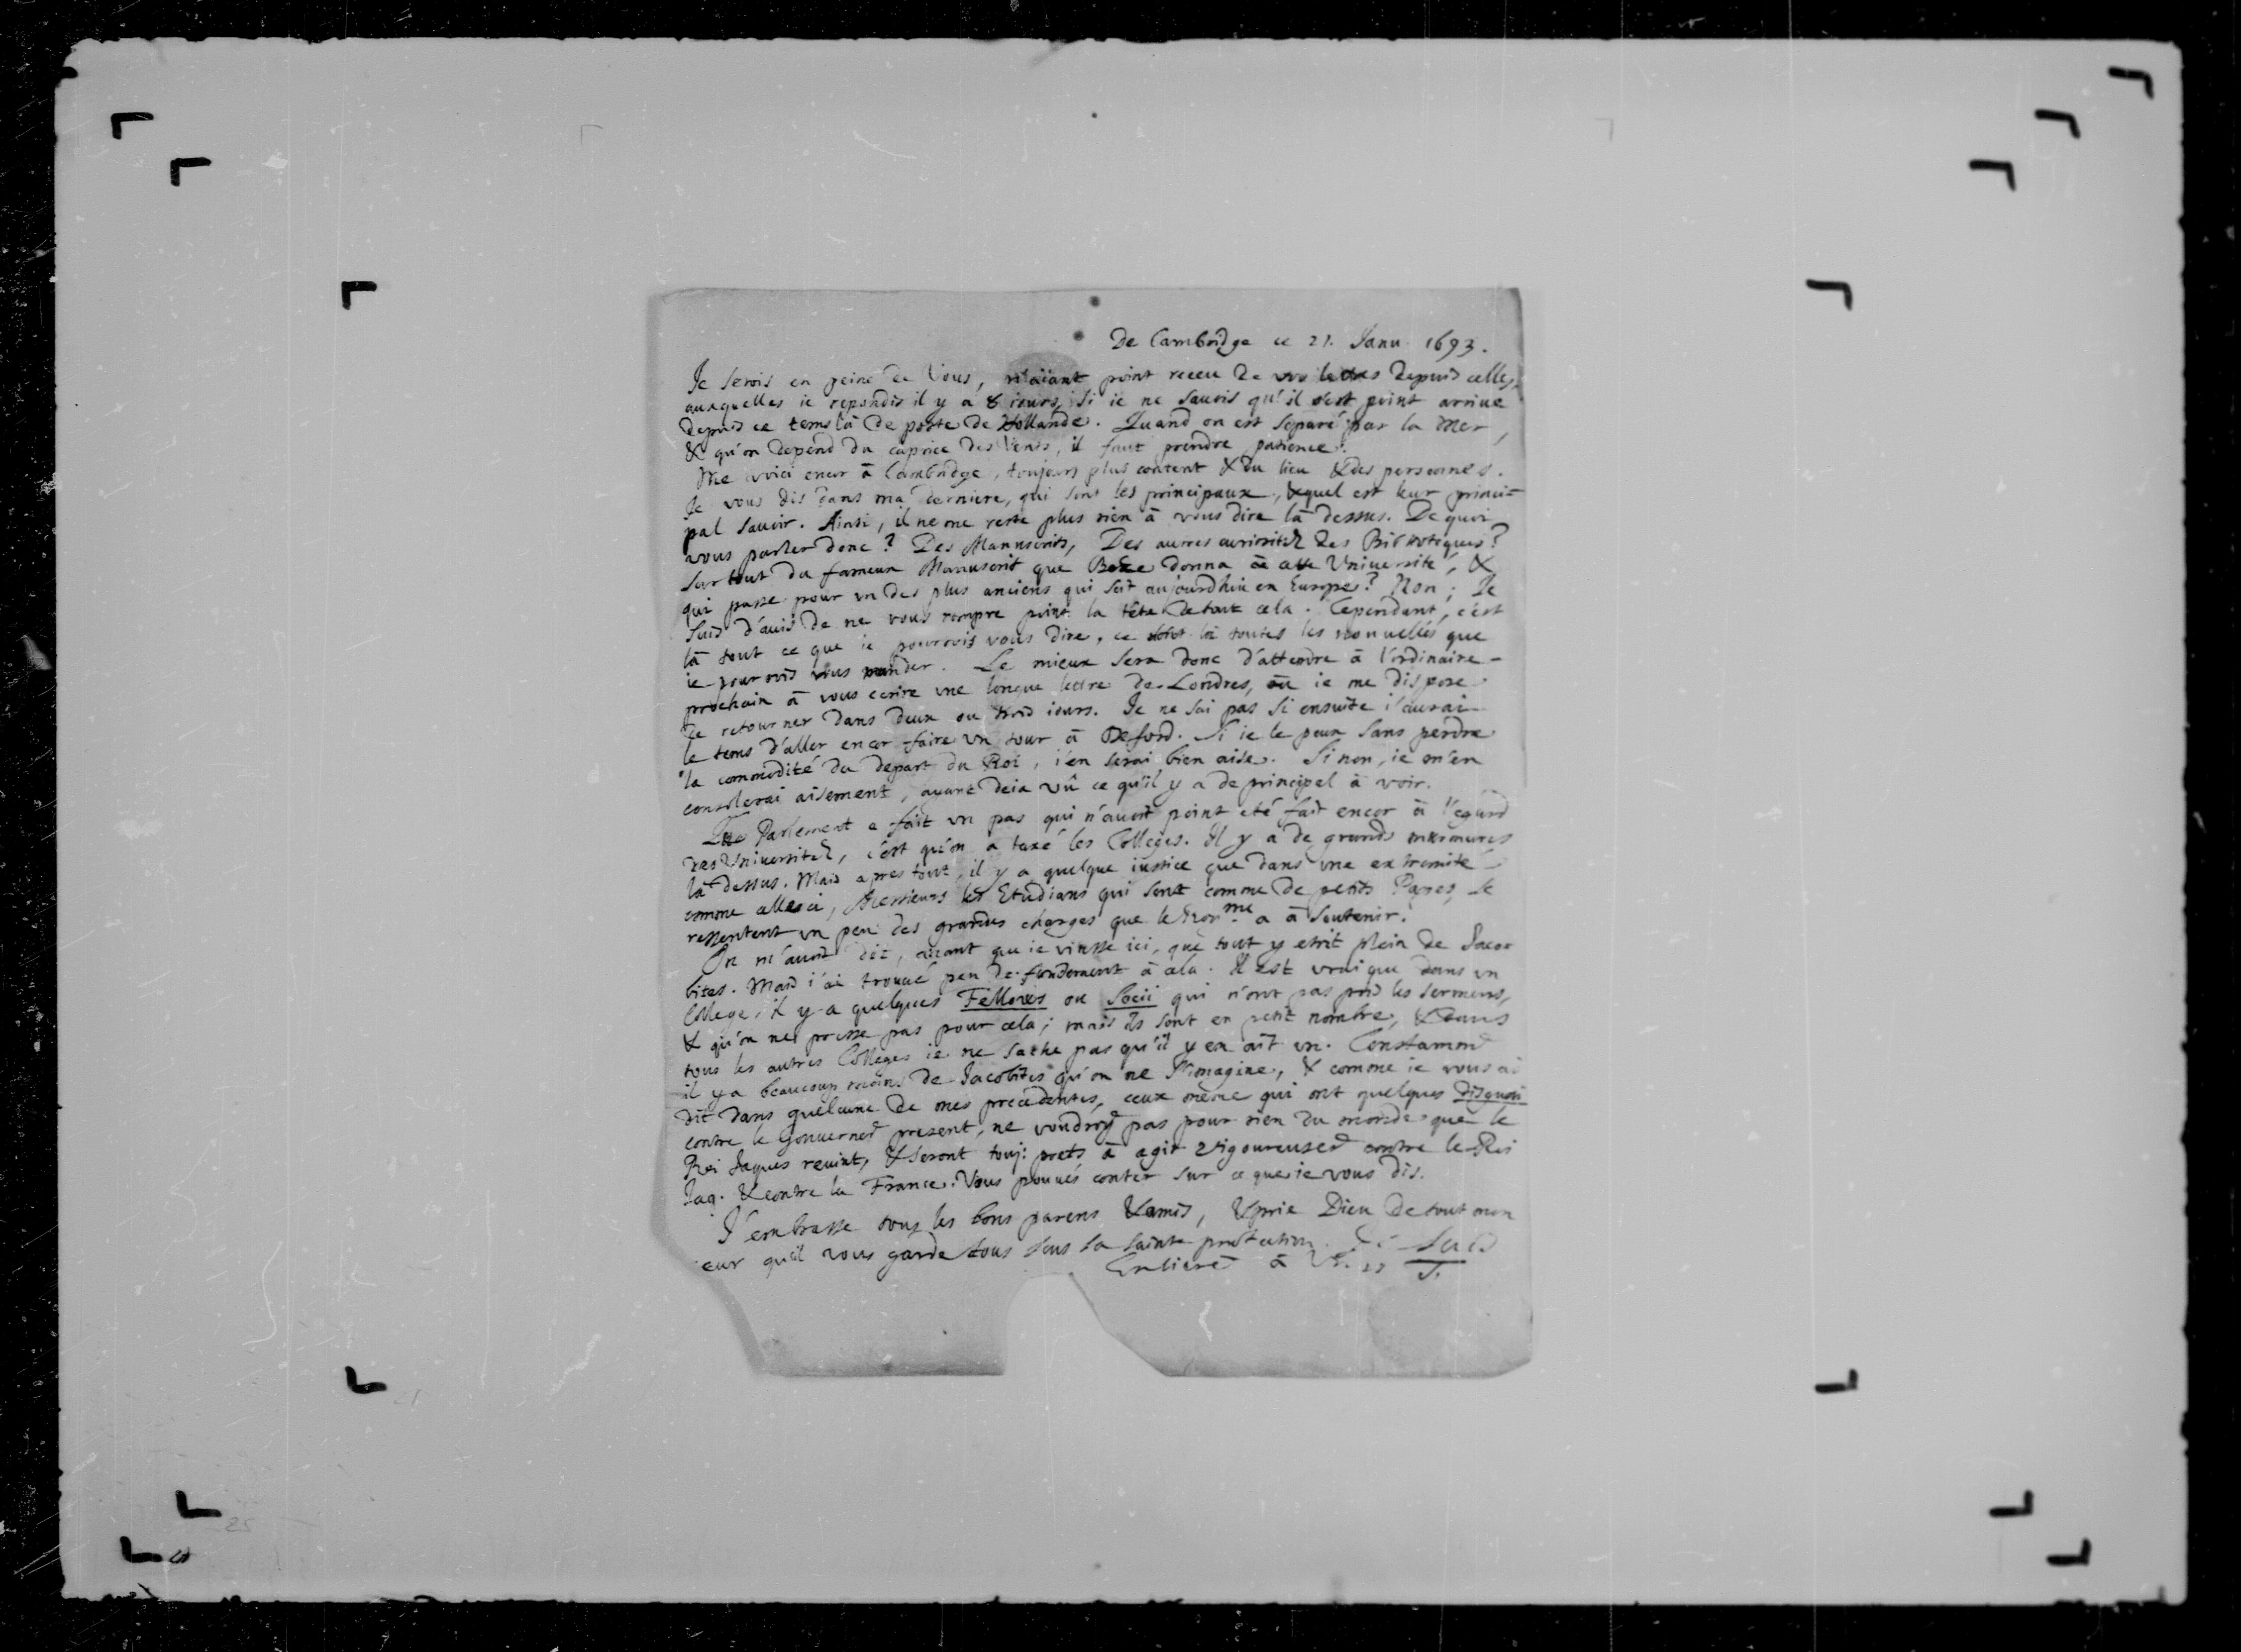 De Cambridge ce 21. Janu. 1693.
Je serois en peine de Vous, n'aiant point receu de vos lettres depuis celles,
auxquelles ie repondis il y a 8 iours, si ie ne savois qu'il n'est point arrivé
depuis ce tems là de poste de Hollande. Quand on est separé par la Mer,
& qu'on depend du caprice des Vents, il faut prendre patience.
Me voici encor à Cambridge, toujours plus content & du lieu & des personnes.
Je vous dis dans ma derniere, qui sont les principaux, & quel est leur princi=
pal savoir. Ainsi, il ne me reste plus rien à vous dire là dessus. De quoi
vous parler donc? Des Manuscrits, Des autres curiositez des Biblioteques?
Sur tout du fameux Manuscrit que Beze donna à cette Université, &
qui passe pour un des plus anciens qui soit aujourdhui en Europe? Non; Je
suis d'avis de ne vous rompre point la tête de tout cela. Cependant, c'est
là tout ce que ie pourrois vous dire, ce sont là toutes les nouvelles que
ie pourrois vous mander. Le mieux sera donc d'attendre à l'ordinaire
prochain à vous ecrire une longue lettre de Londres, où ie me dispose
de retourner dans deux ou trois iours. Je ne sai pas si ensuite i'aurai
le tems d'aller encor faire un tour à Oxford. Si ie le peux sans perdre
la commodité du depart du Roi, i'en serai bien aise. Si non, ie m'en
consolerai aisement, ayant deia vû ce qu'il y a de principal à voir.
Le Parlement a fait un pas qui n'avoit point eté fait encor à l'egard
des Universitez, c'est qu'on a taxé les Colleges. Il y a de grands murmures
là dessus. Mais apres tout, il y a quelque iustice que dans une extremité
comme celle ci, Messieurs les Etudians qui sont comme de petits Papes, se
ressentent un peu des grandes charges que le Roy.me a à soutenir.
On m'avoit dit, avant que ie vinsse ici, que tout y etoit plein de Jaco=
bites. Mais i'ai trouvé peu de fondement à cela. Il est vrai que dans un
College, il y a quelques Fellows ou Socii qui n'ont pas pris les sermens,
& qu'on ne presse pas pour cela; mais ils sont en petit nombre, & dans
tous les autres Colleges ie ne sache pas qu'il y en ait un. Constamm.t
il y a beaucoup moins de Jacobites qu'on ne s'imagine, & comme ie vous ai
dit dans quelcune de mes precedentes, ceux même qui ont quelques
contre le Gouvernem.t present, ne voudroy.t pas pour rien du monde que le
Roi Jaques revint, & seront touj: prets à agir vigoureusem.t contre le Roi
Jaq. & contre la France. Vous pouvés conter sur ce que ie vous dis.
J'embrasse tous les bons parens & amis, & prie Dieu de tout mon
cœur qu'il vous garde tous sous sa sainte protection. Je suis
à